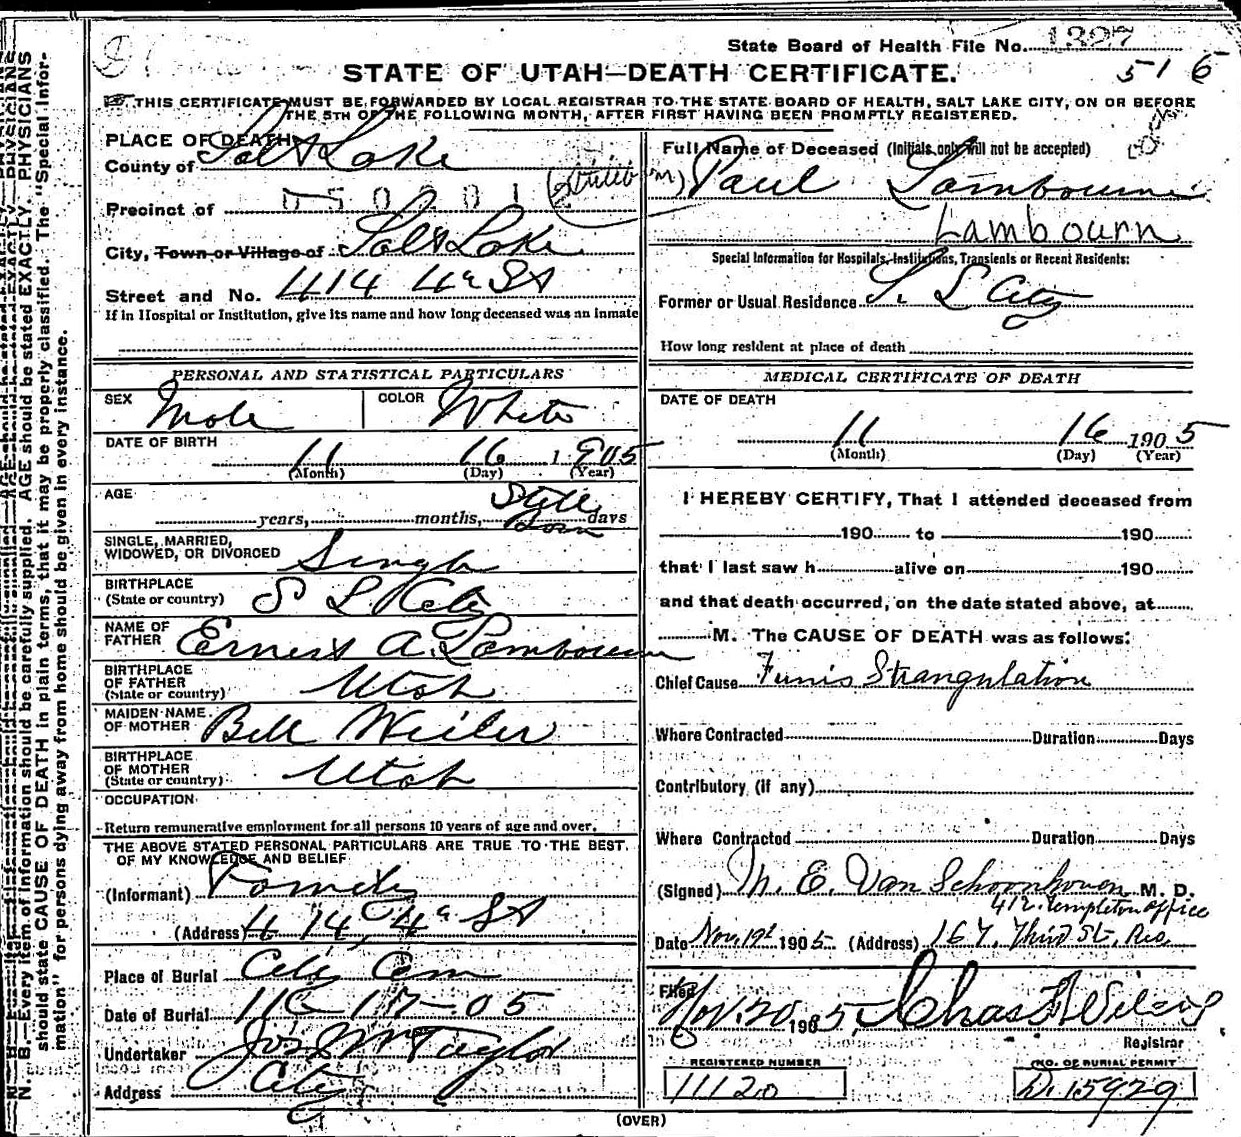 State Board of Health File No. 1327
516
STATE OF UTAH—DEATH CERTIFICATE.
THIS CERTIFICATE MUST BE FORWARDED BY LOCAL REGISTRAR TO THE STATE BOARD OF HEALTH, SALT LAKE CITY, ON OR BEFORE
THE 5TH OF THE FOLLOWING MONTH, AFTER FIRST HAVING BEEN PROMPTLY REGISTERED.
PLACE OF DEATH
County of Salt Lake
Precinct of
City, Town or Village of Salt Lake
Street and No. 414 4th St
If in Hospital or Institution, give its name and how long deceased was an inmate
Full Name of Deceased (Initials only will not be accepted)
(Stillborn) Paul Lambourne
Lambourn
Special Information for Hospitals, Institutions, Transients or Recent Residents:
Former or Usual Residence S. L City
How long resident at place of death
PERSONAL AND STATISTICAL PARTICULARS
SEX Male COLOR White
DATE OF BIRTH
11 16 1905
(Month) (Day) (Year)
AGE
years, months, Still Born days
SINGLE, MARRIED,
WIDOWED, OR DIVORCED Single
BIRTHPLACE
(State or country) S L City
NAME OF
FATHER Ernest A. Lambourn
BIRTHPLACE
OF FATHER
(State or country) Utah
MAIDEN NAME
OF MOTHER Bell Weiler
BIRTHPLACE
OF MOTHER
(State or country) Utah
OCCUPATION
Return remunerative employment for all persons 10 years of age and over.
THE ABOVE STATED PERSONAL PARTICULARS ARE TRUE TO THE BEST
OF MY KNOWLEDGE AND BELIEF
(Informant) Family
(Address) 414, 4th St
Place of Burial City Cem
Date of Burial 11-17-05
Undertaker Jos. Wm Taylor
Address City
MEDICAL CERTIFICATE OF DEATH
DATE OF DEATH
11 16 1905
(Month) (Day) (Year)
I HEREBY CERTIFY, That I attended deceased from
190 to 190
that I last saw h alive on 190
and that death occurred, on the date stated above, at
M. The CAUSE OF DEATH was as follows:
Chief Cause Funis Strangulation
Where Contracted Duration Days
Contributory (if any)
Where Contracted Duration Days
(Signed) M. E. Van Schoonhoven M. D.
412 Templeton office
Date Nov. 19th 1905 (Address) 167, Third St., Res.
Filed Nov. 20 1905,
Registrar
REGISTERED NUMBER
11120
NO. OF BURIAL PERMIT
D. 15929
(OVER)
N. B.—Every item of information should be carefully supplied. AGE should be stated EXACTLY. PHYSICIANS
should state CAUSE OF DEATH in plain terms, that it may be properly classified. The "Special Infor-
mation" for persons dying away from home should be given in every instance.